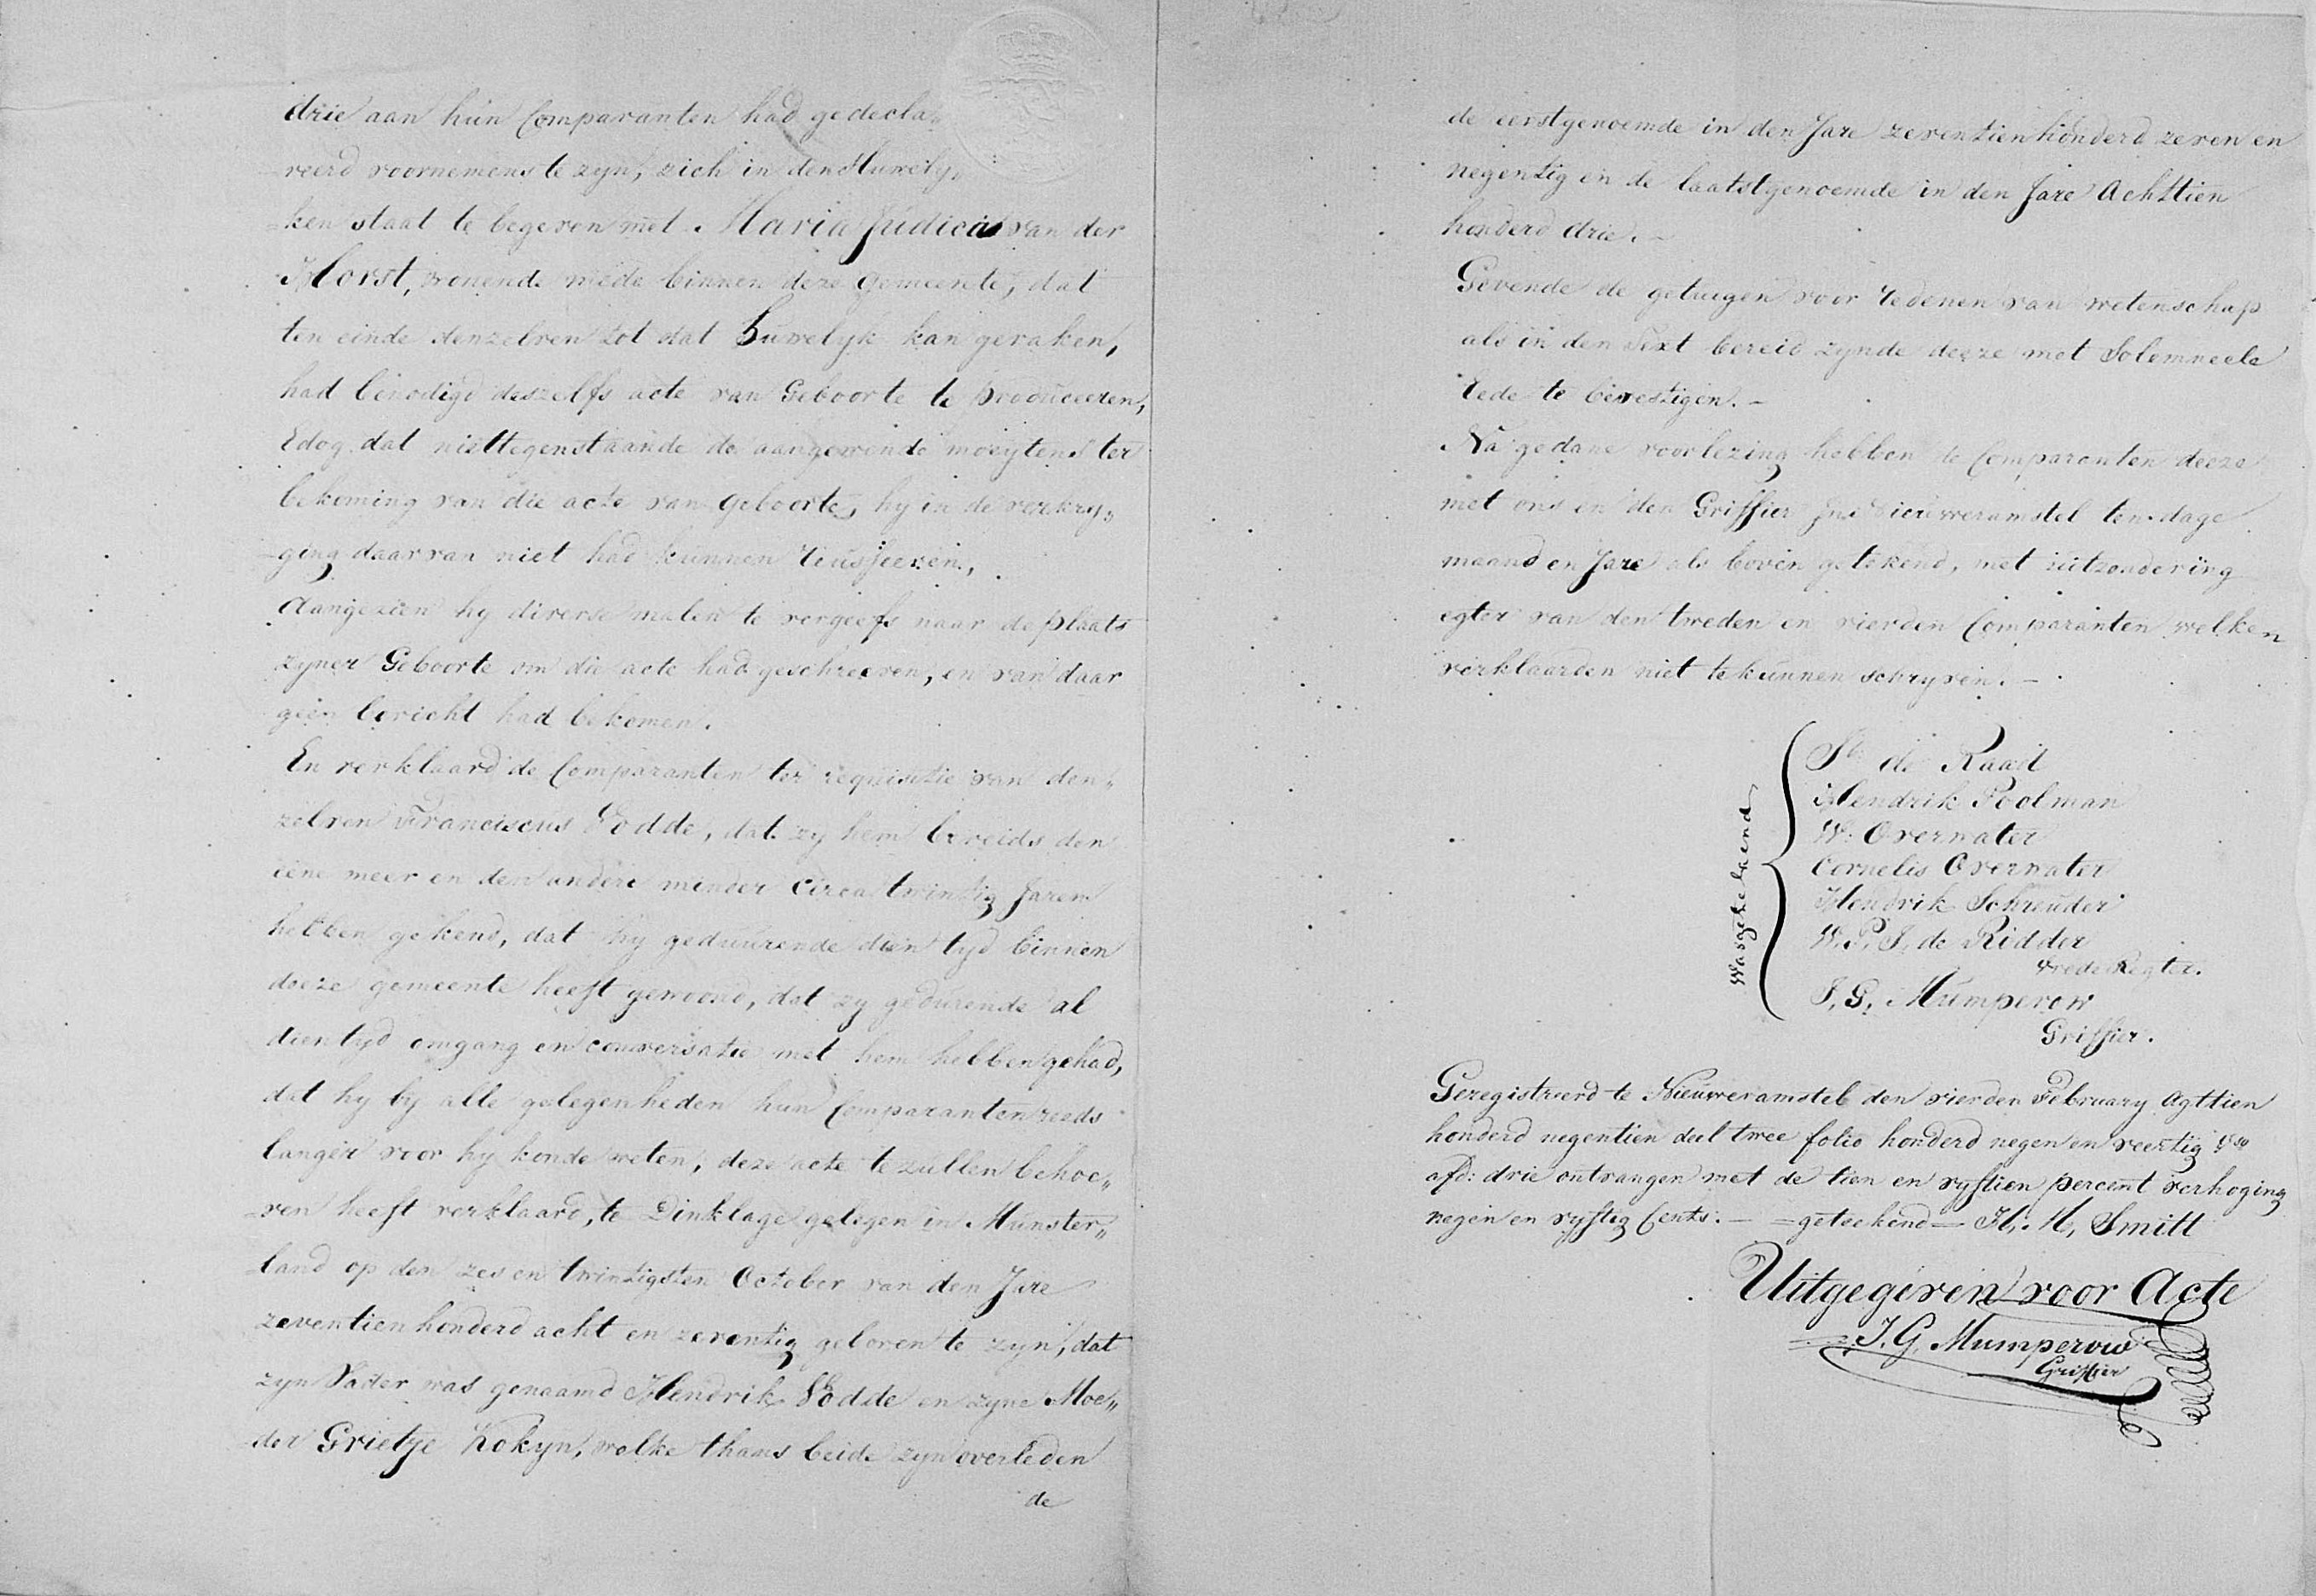 drie aan hun Comparanten had gedecla„
reerd voornemens te zyn, zich in den Huwely„
ken staat te begeven met Maria Judica van der
Horst, wonende mede binnen deze gemeente, dat
ten einde denzelven tot dat Huwelyk kan geraken,
had benodigd deszelfs acte van Geboorte te Produceeren,
Edog dat niettegenstaande de aangewende moeytens ter
bekoming van die acte van Geboorte, hy in de verkry„
ging daarvan niet had kunnen reusseeren,
Aangezien hy diverse malen te vergeefs naar de plaats
zyner Geboorte om die acte had geschreeven, en van daar
geen bericht had bekomen.
En verklaard de Comparanten ter requisitie van den„
zelven Franciscus Vodde, dat zy hem bereids den
eene meer en den andere minder circa twintig Jaren
hebben gekend, dat hy geduurende dien tyd binnen
deeze gemeente heeft gewoond, dat zy gedurende al
dien tyd omgang en conversatie met hem hebben gehad,
dat hy by alle gelegenheden hun Comparanten reeds
langer voor hy konde weten, deze acte te zullen behoe„
ven heeft verklaard, te Dinklage gelegen in Munster„
land op den zes en twintigsten October van den Jare
zeventien honderd acht en zeventig geboren te zyn, dat
zyn Vader was genaamd Hendrik Vodde en zyne Moe„
der Grietje Kokyn, welke thans beide zyn overleden
de
de eerstgenoemde in den Jare zeventien honderd zeven en
negentig en de laatstgenoemde in den Jare Achttien
honderd drie.—
Gevende de getuigen voor redenen van wetenschap
als in den Text bereid zynde deeze met Solemneele
Eede te bevestigen.—
Na gedane voorlezing hebben de Comparanten deeze
met ons en den Griffier Nieuweramstel ten dage
maand en Jare als boven getekend, met uitzondering
egter van den tweden en vierden Comparanten welken
verklaarden niet te kunnen schryven.—
Was getekend
de Raad
Hendrik Poolman
W. Overwater
Cornelis Overwater
Hendrik Schreuder
W. P. J. de Ridder
Vrede Regter.
J. G. Mumperow
Griffier.
Geregistreerd te Nieuweramstel den vierden February Agttien
honderd negentien deel twee folio honderd negen en veertig Vso
afd: drie ontvangen met de tien en vyftien percent verhoging
negen en vyftig Cents.— =geteekend= H. H. Smitt
Uitgegeven voor Acte
J. G. Mumperow
Griffier